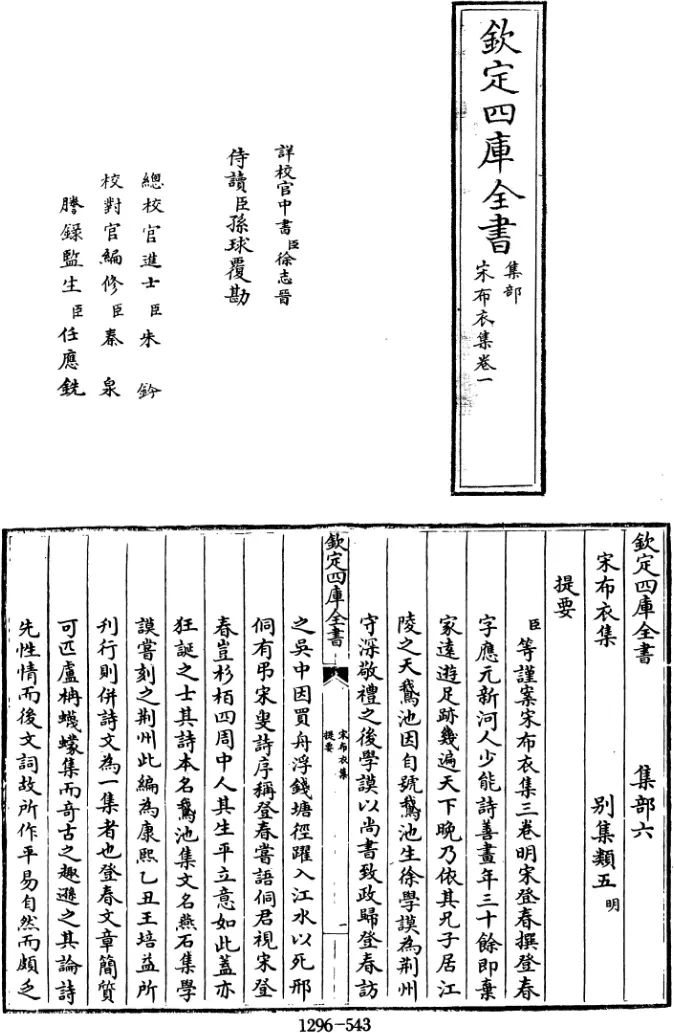 欽定四庫全書
集部
宋布衣集卷一
詳校官中書臣徐志晉
侍讀臣孫球覆勘
總校官進士臣朱鈐
校對官編修臣秦泉
謄錄監生臣任應銑
欽定四庫全書 集部六
宋布衣集 別集類五明
提要
臣等謹案宋布衣集三卷明宋登春撰登春
字應元新河人少能詩善畫年三十餘即棄
家遠遊足跡幾遍天下晚乃依其兄子居江
陵之天鵞池因自號鵞池生徐學謨為荆州
守深敬禮之後學謨以尚書致政歸登春訪
欽定四庫全書
宋布衣集
提要
一
之吳中因買舟浮錢塘徑躍入江水以死邢
侗有弔宋叟詩序稱登春嘗語侗君視宋登
春豈杉栢四周中人其生平立意如此蓋亦
狂誕之士其詩本名鵞池集文名燕石集學
謨嘗刻之荆州此編為康熙乙丑王培益所
刋行則併詩文為一集者也登春文章簡質
可匹盧柟蠛蠓集而奇古之趣遜之其論詩
先性情而後文詞故所作平易自然而頗乏
1296-543